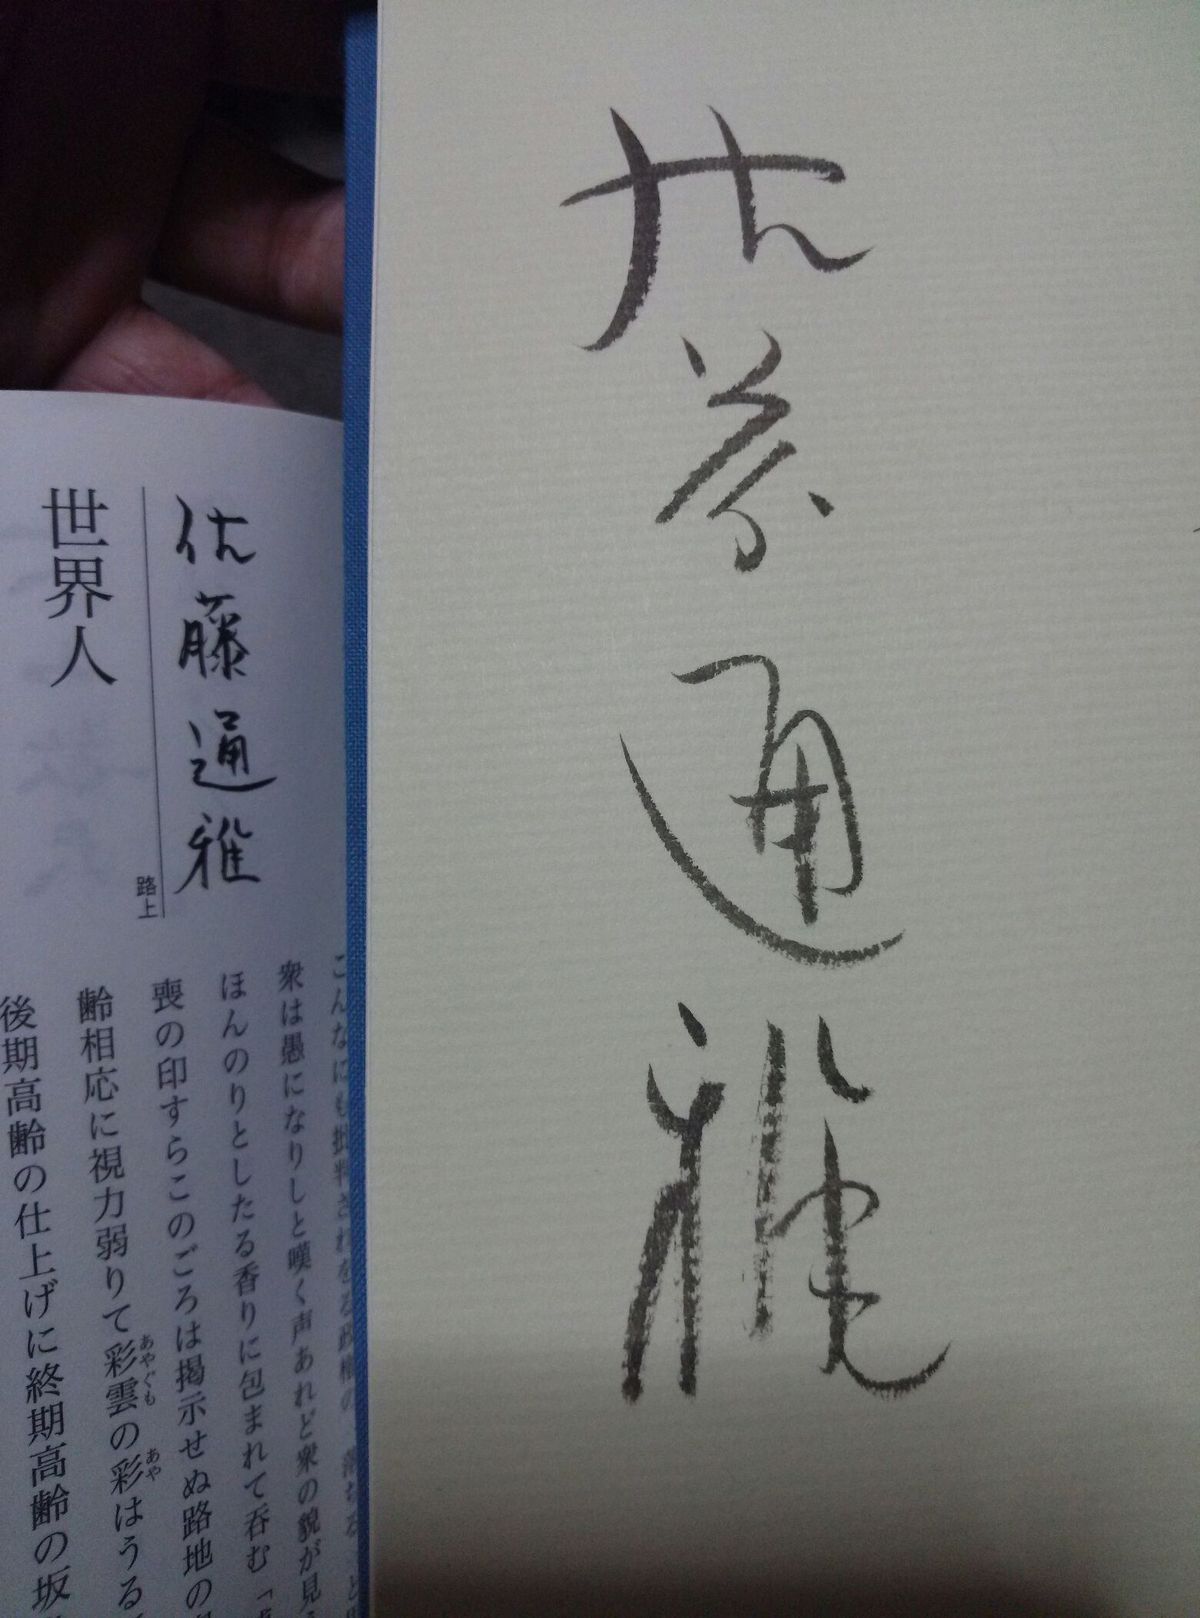 佐藤通雅
佐藤通雅
路上
世界人
こんなにも批判されをる政権の 落ちる
衆は愚になりしと嘆く声あれど衆の貌が見
ほんのりとしたる香りに包まれて呑む「
喪の印すらこのごろは掲示せぬ路地の
齢相応に視力弱りて彩雲の彩はうる
あやぐも
あや
後期高齢の仕上げに終期高齢の坂